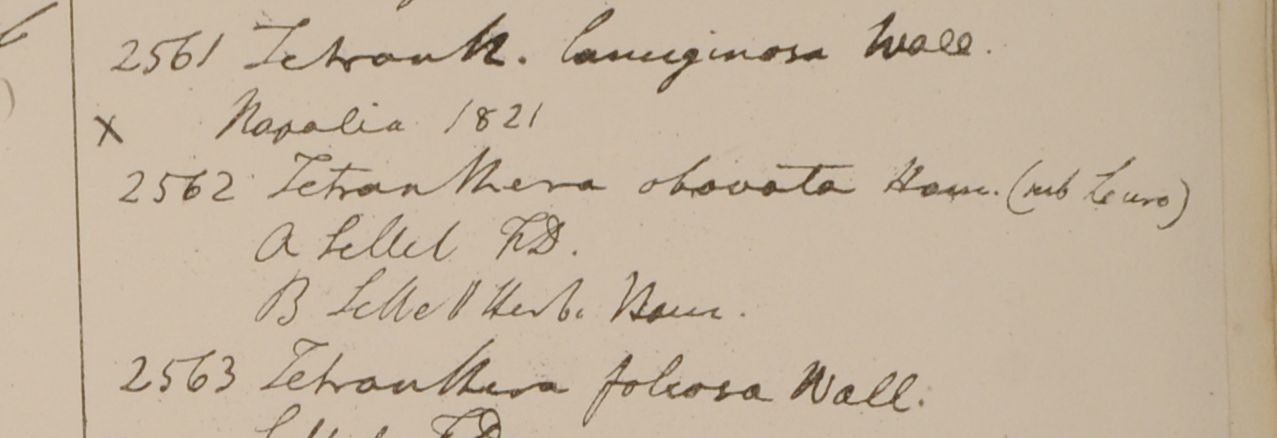 2561 Tetranth. lanuginosa Wall.
x Napalia 1821
2562 Tetranthera obovata Ham. (sub Lauro)
A Sillet F.D.
B Sillet Herb. Ham.
2563 Tetranthera foliosa Wall.
Sillet F.D.